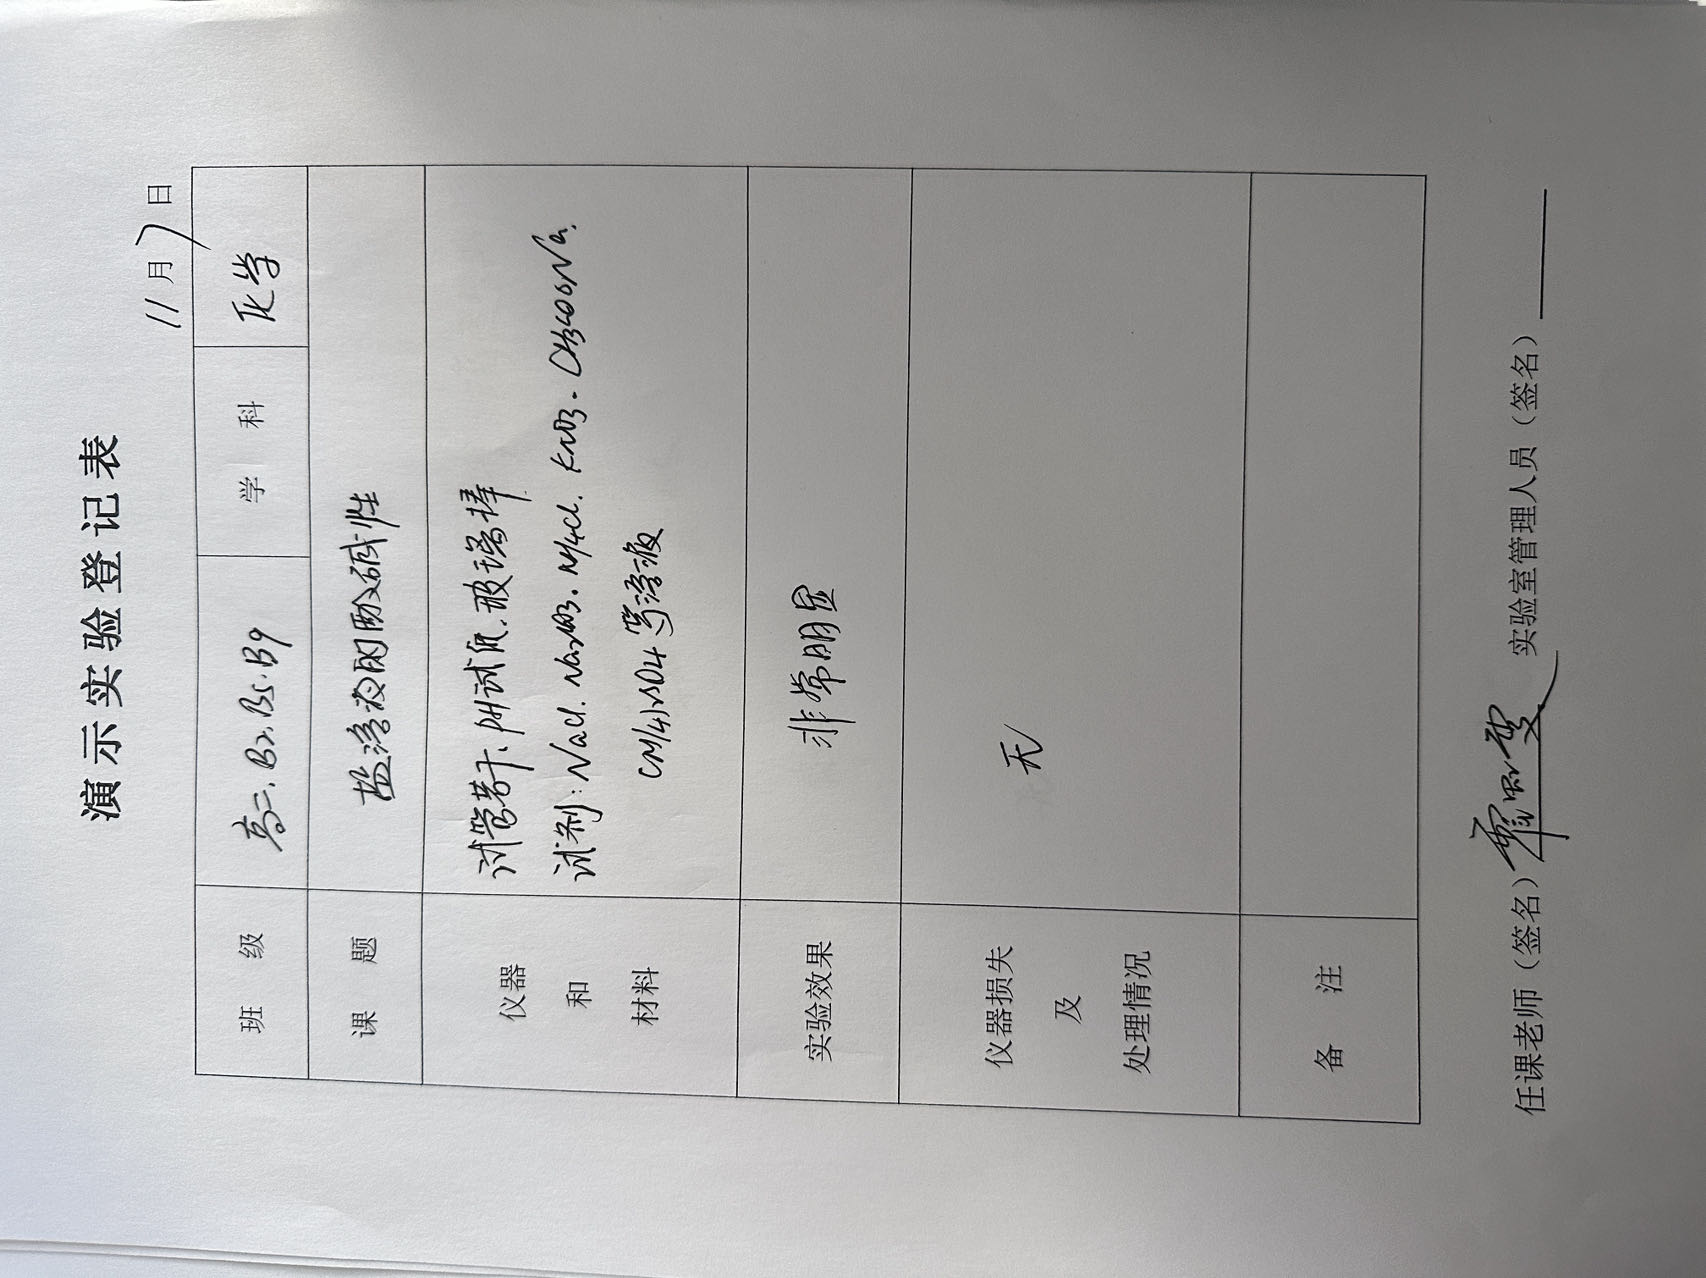 演示实验登记表
11月7日
班 级 高二.B2.B5.B9 学 科 化学
课 题 盐溶液的酸碱性
仪器和材料 试管若干、PH试纸.玻璃棒
试剂:NaCl. Na2CO3. NH4Cl. KNO3. CH3COONa.
(NH4)2SO4 等溶液
实验效果 非常明显
仪器损失及处理情况 无
备 注
任课老师（签名） 实验室管理人员（签名）